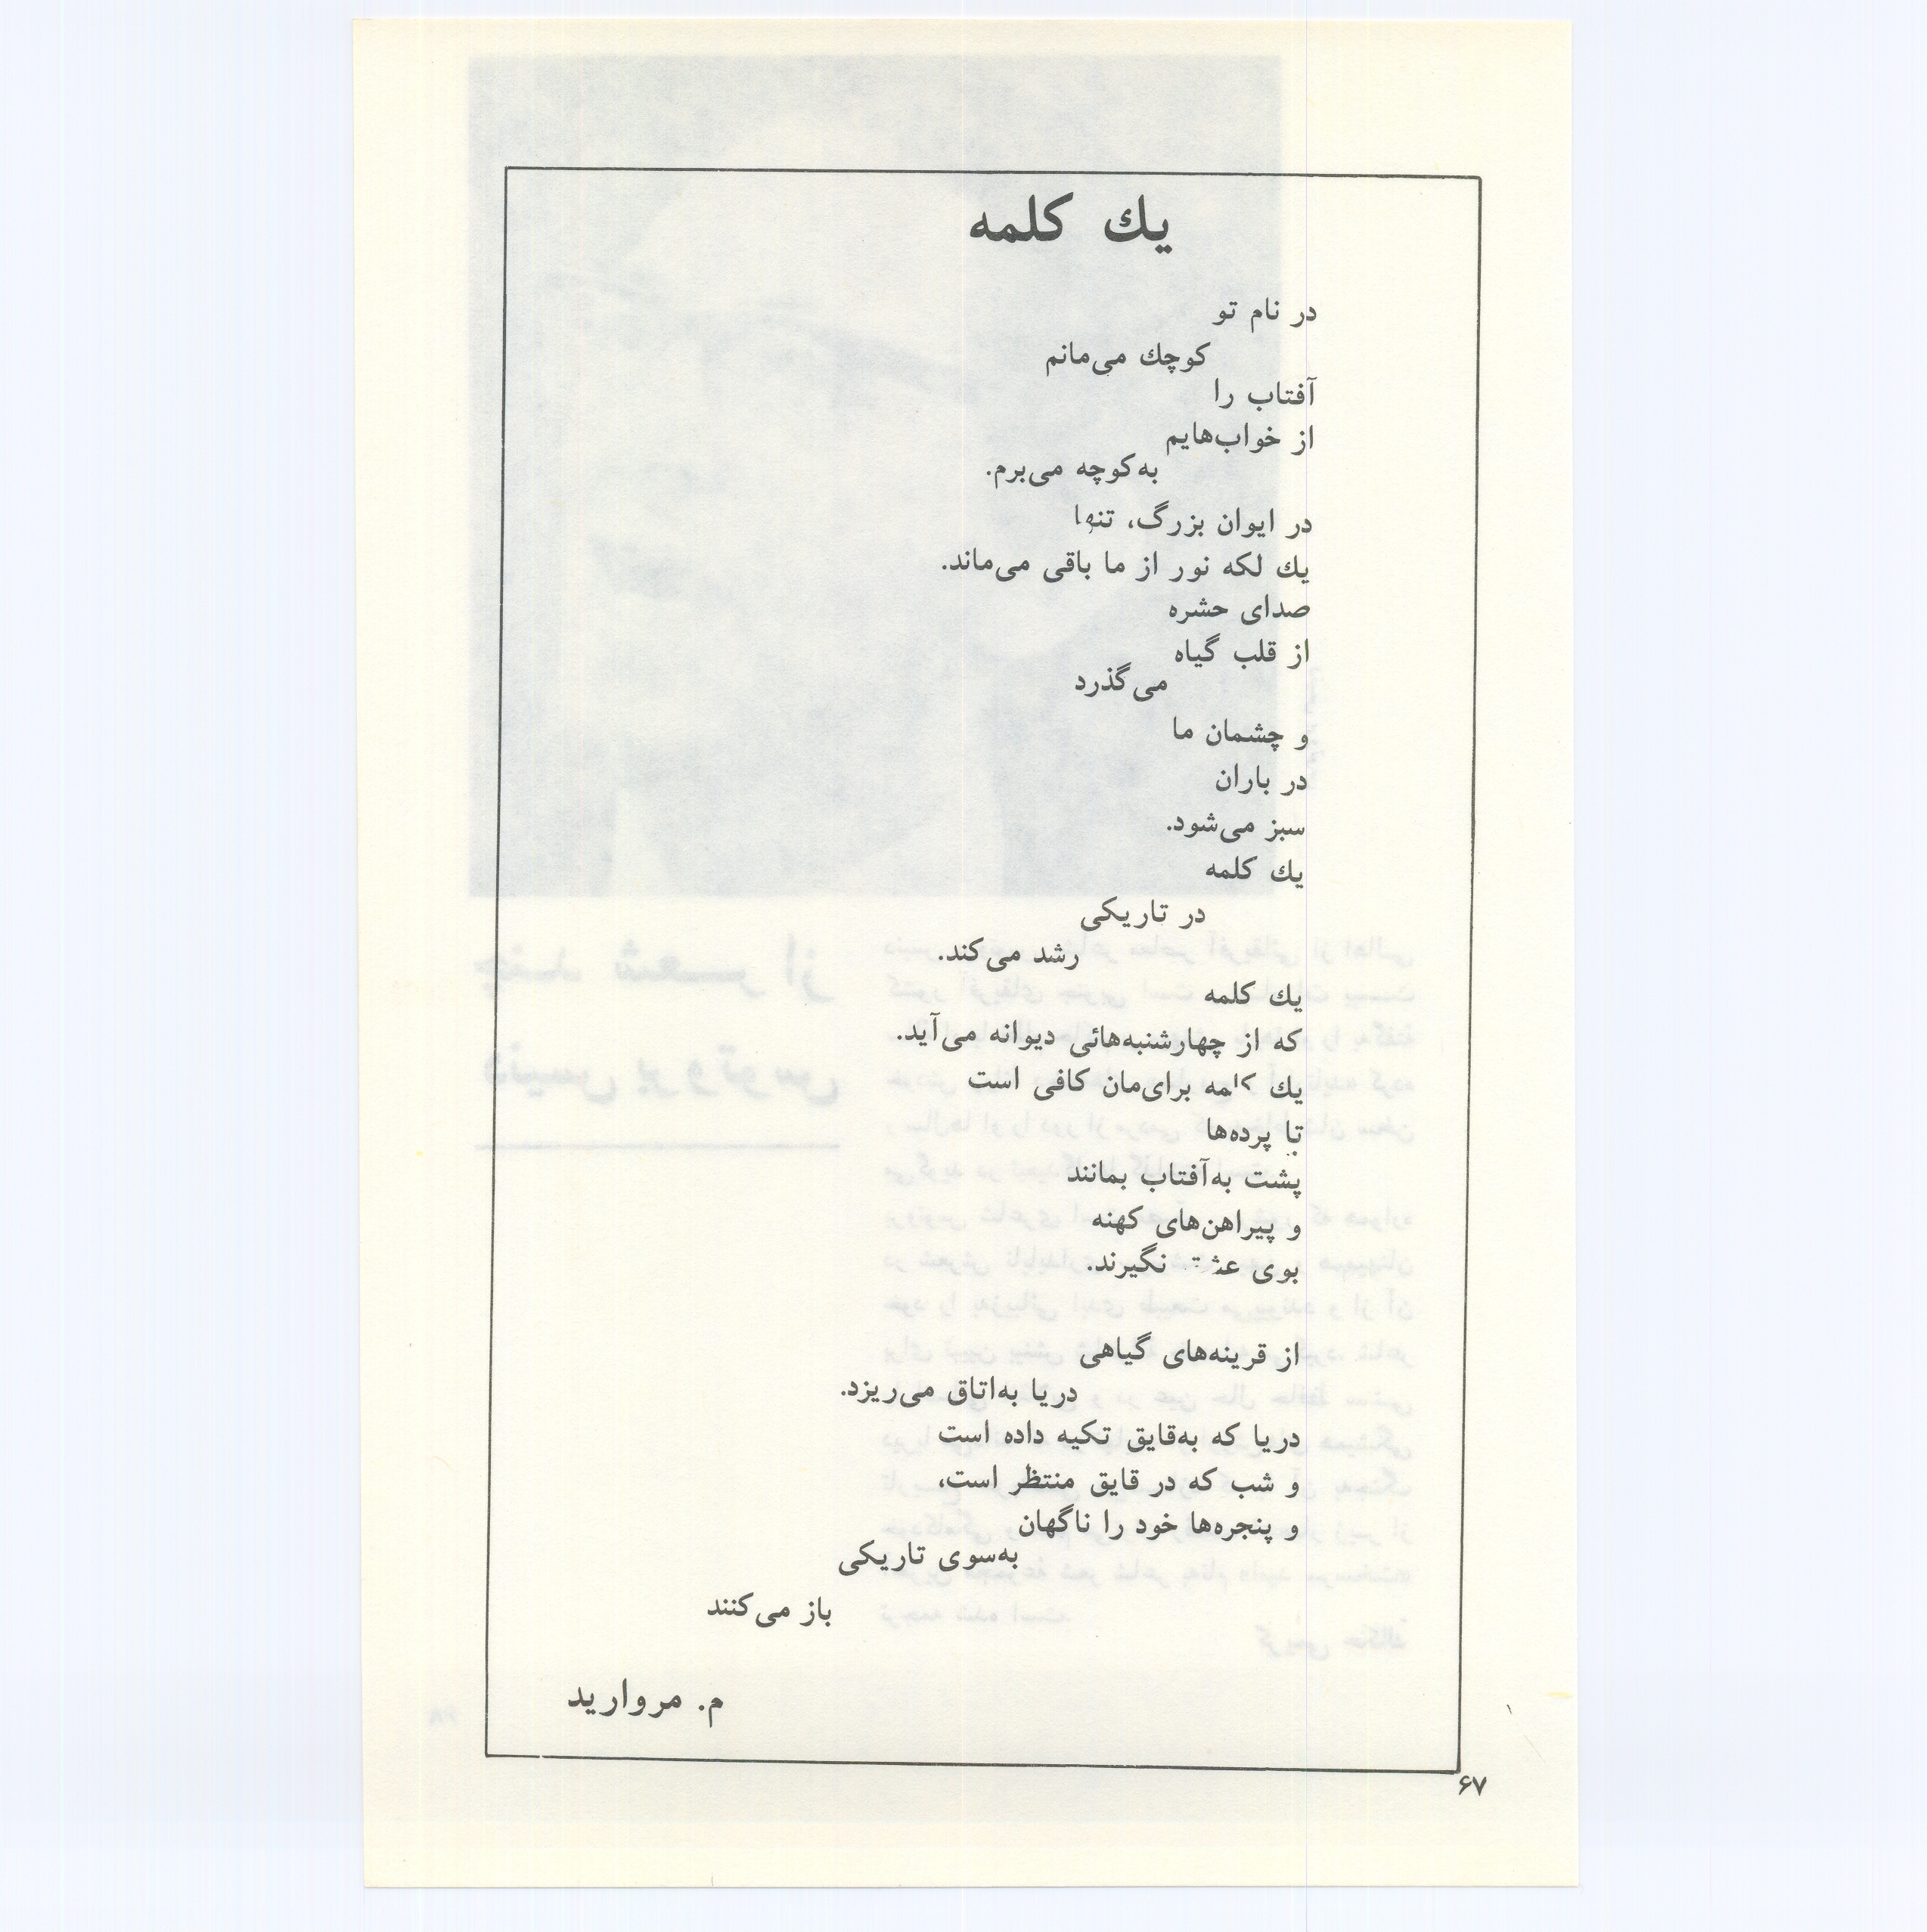 يك كلمه
در نام تو
كوچك می‌مانم
آفتاب را
از خواب‌هایم
به‌كوچه می‌برم.
در ایوان بزرگ، تنها
يك لكه نور از ما باقی می‌ماند.
صدای حشره
از قلب گیاه
می‌گذرد
و چشمان ما
در باران
سبز می‌شود.
يك كلمه
در تاریکی
رشد می‌كند.
يك كلمه
که از چهارشنبه‌هائی دیوانه می‌آید.
يك كلمه برای‌مان کافی است
تا پرده‌ها
پشت به‌آفتاب بمانند
و پیراهن‌های کهنه
بوی عشق نگیرند.
از قرینه‌های گیاهی
دریا به‌اتاق می‌ریزد.
دریا که به‌قایق تکیه داده است
و شب که در قایق منتظر است،
و پنجره‌ها خود را ناگهان
به‌سوی تاریکی
باز می‌کنند
م. مروارید
۶۷